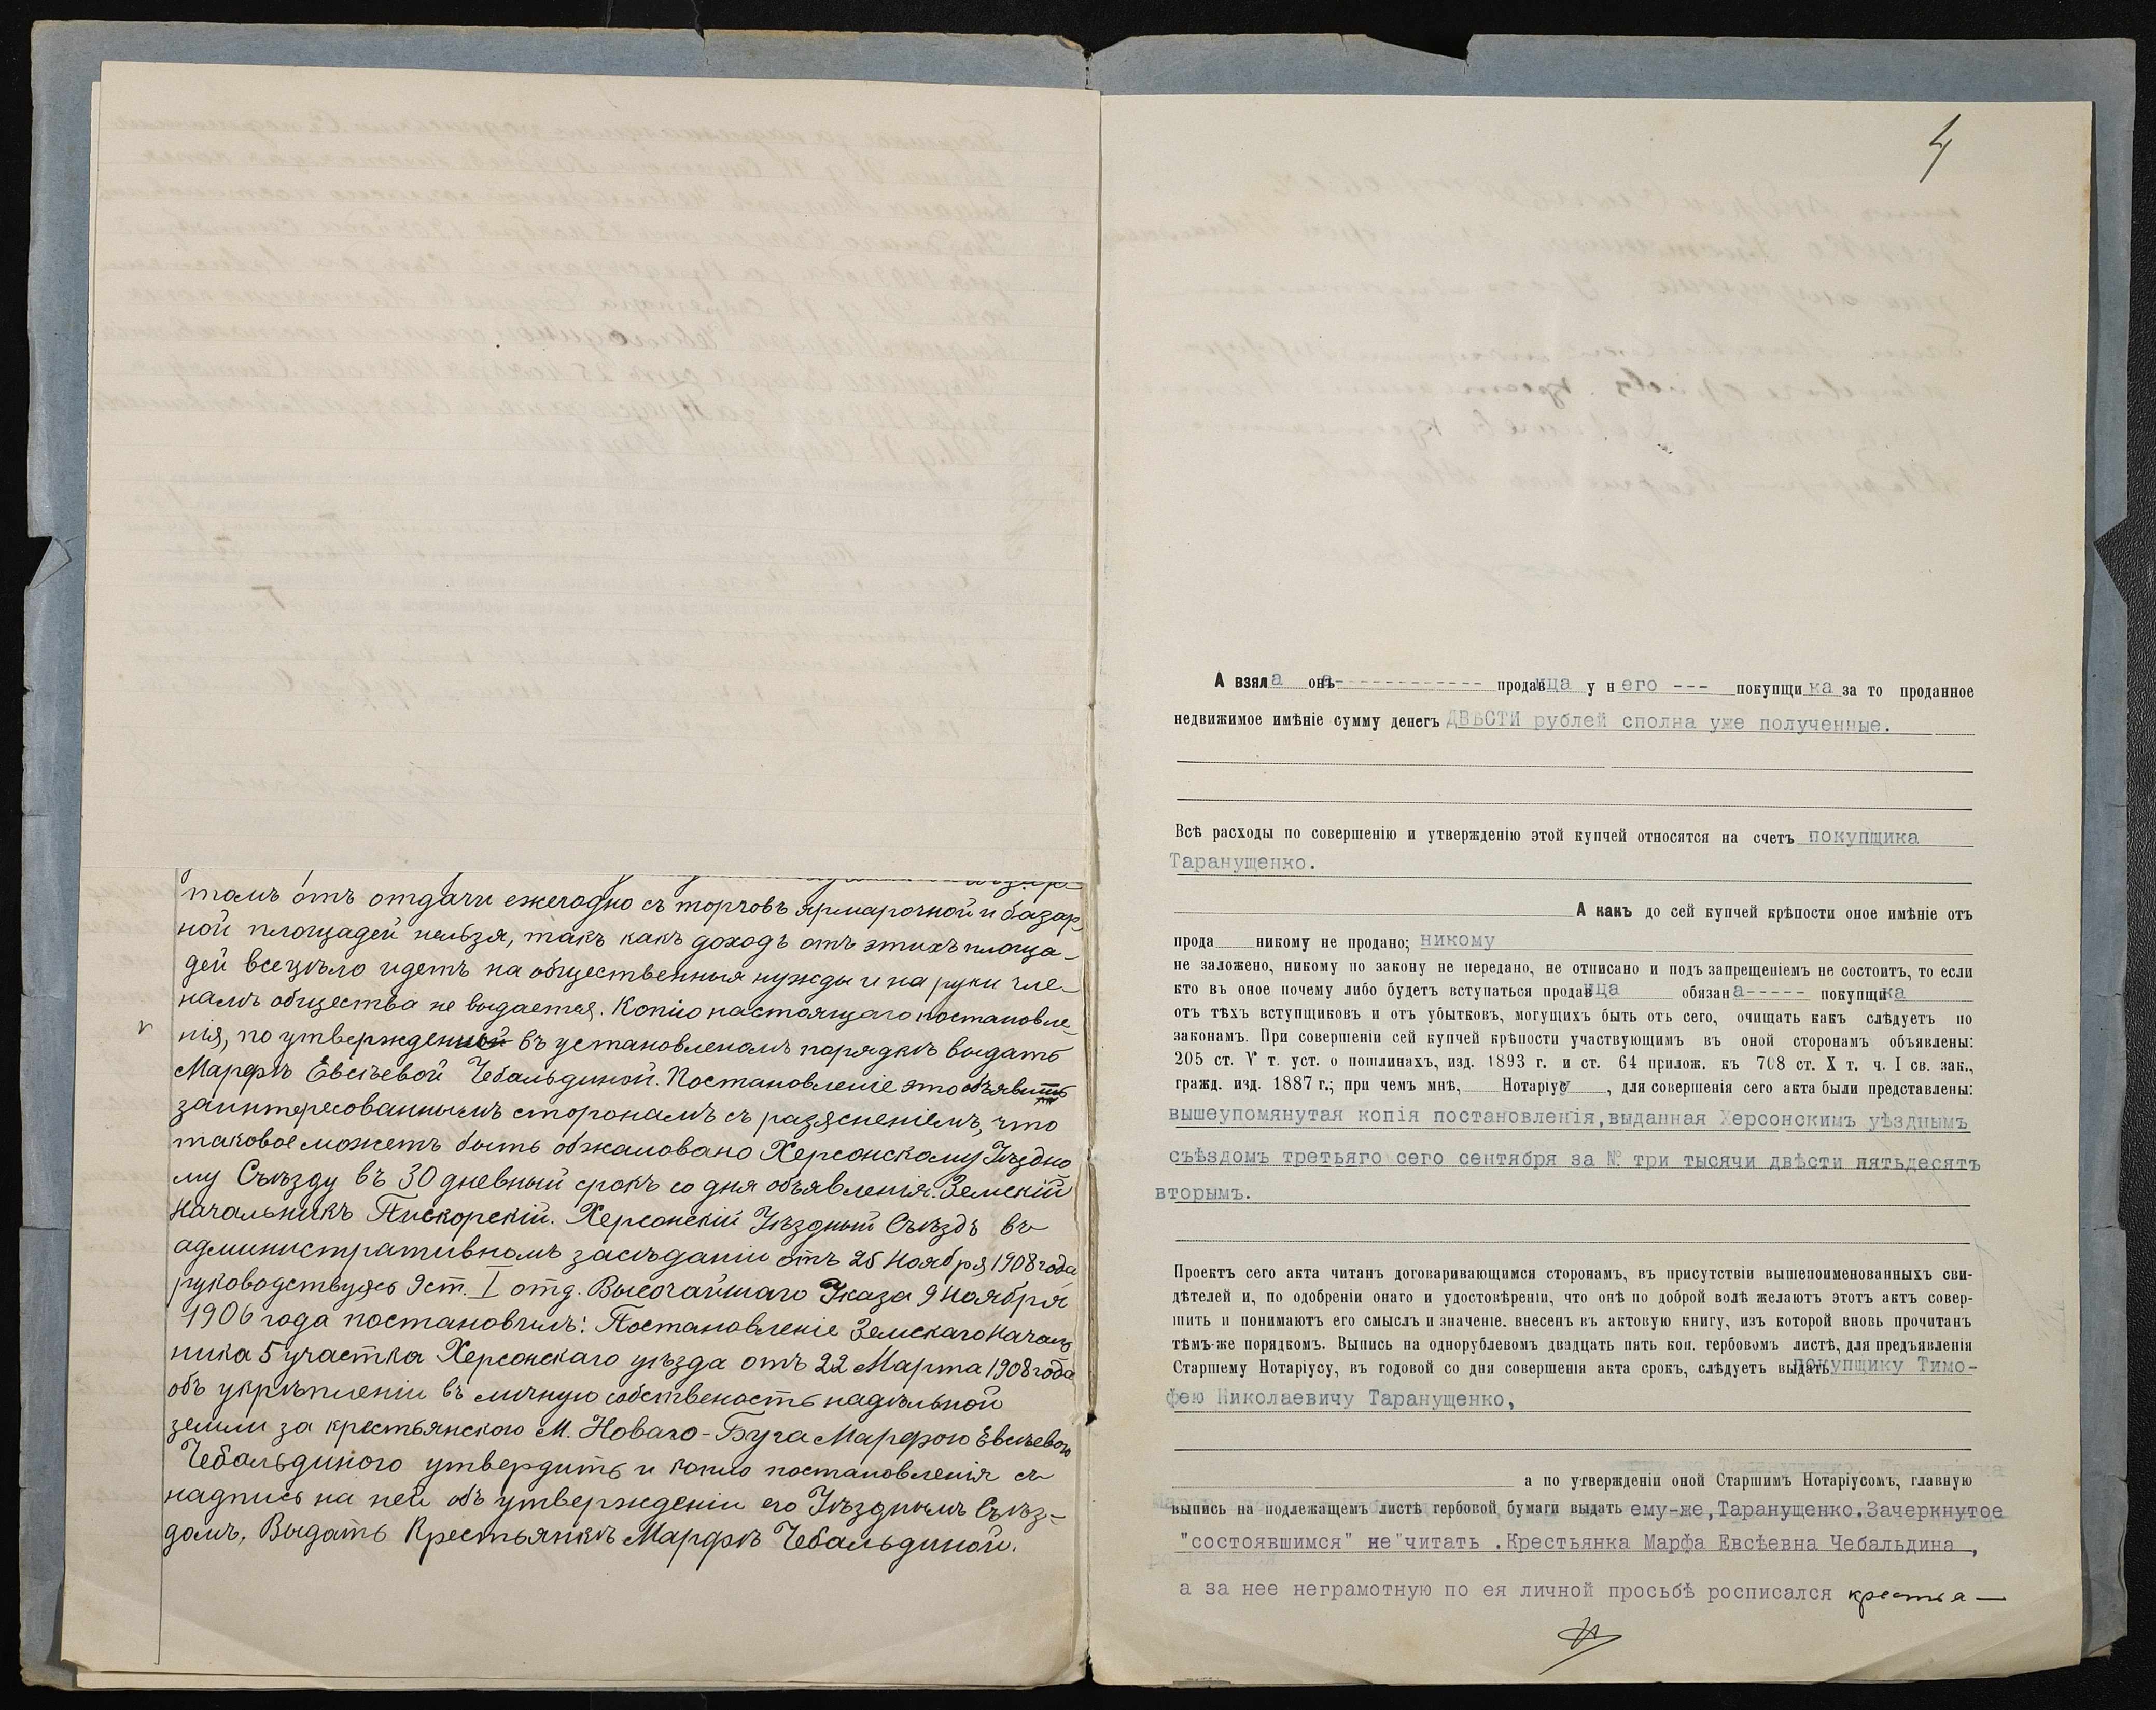 томъ отъ отдачи ежегодно съ торговъ ярмарочной и базар-
ной площадей нельзя, такъ какъ доходъ отъ этихъ площа-
дей всецѣло идетъ на общественныя нужды и на руки чле-
намъ общества не выдается. Копію настоящаго постановле-
нія, по утвержденной въ установленомъ порядкѣ выдать
Марфѣ Евсѣевой Чебальдиной. Постановленіе это объявить
заинтересованнымъ сторонамъ съ разясненіемъ, что
таковое можетъ быть обжаловано Херсонскому Уѣздно
му Съѣзду въ 30 дневный срокъ со дня объявленія. Земскій
Начальникъ Пискорскій. Херсонскій Уѣздный Съѣздъ въ
административномъ засѣданіи отъ 25 Ноября 1908 года
руководствуясь 9 ст. I отд. Высочайшаго Указа 9 Ноября
1906 года постановилъ: Постановленіе Земскаго Началь
ника 5 участка Херсонскаго уѣзда отъ 22 Марта 1908 года
объ укрѣпленіи въ личную собственость надѣльной
земли за крестьянскою М. Новаго-Буга Марфою Евсѣевою
Чебальдиною утвердить и копію постановленія съ
надпись на ней объ утвержденіи его Уѣзднымъ Съѣз-
домъ, Выдать Крестьянкѣ Марфѣ Чебальдиной.
4
А взяла она------------- продавица у него --- покупщика за то проданное
недвижимое имѣніе сумму денегъ ДВѢСТИ рублей сполна уже полученные.
Всѣ расходы по совершенію и утвержденію этой купчей относятся на счетъ покупщика
Таранущенко.
А какъ до сей купчей крѣпости оное имѣніе отъ
прода никому не продано; никому
не заложено, никому по закону не передано, не отписано и подъ запрещеніемъ не состоитъ, то если
кто въ оное почему либо будетъ вступаться продавица обязана----- покупщика
отъ тѣхъ вступщиковъ и отъ убытковъ, могущихъ быть отъ сего, очищать какъ слѣдуетъ по
законамъ. При совершеніи сей купчей крѣпости участвующимъ въ оной сторонамъ объявлены:
205 ст. V т. уст. о пошлинахъ, изд. 1893 г. и ст. 64 прилож. къ 708 ст. X т. ч. I св. зак.,
гражд. изд. 1887 г.; при чемъ мнѣ, Нотаріусу, для совершенія сего акта были представлены:
вышеупомянутая копія постановленія,выданная Херсонскимъ уѣзднымъ
съѣздомъ третьяго сего сентября за № три тысячи двѣсти пятьдесятъ
вторымъ.
Проектъ сего акта читанъ договаривающимся сторонамъ, въ присутствіи вышепоименованныхъ сви-
дѣтелей и, по одобреніи онаго и удостовѣреніи, что онѣ по доброй волѣ желаютъ этотъ актъ совер-
шить и понимаютъ его смыслъ и значеніе. внесенъ въ актовую книгу, изъ которой вновь прочитанъ
тѣмъ-же порядкомъ. Выпись на однорублевомъ двадцать пять коп. гербовомъ листѣ, для предъявленія
Старшему Нотаріусу, въ годовой со дня совершенія акта срокъ, слѣдуетъ выдать покупщику Тимо-
фею Николаевичу Таранущенко,
а по утвержденіи оной Старшимъ Нотаріусомъ, главную
выпись на подлежащемъ листѣ гербовой бумаги выдать ему-же,Таранущенко.Зачеркнутое
"состоявшимся" не читать .Крестьянка Марфа Евсѣевна Чебальдина ,
а за нее неграмотную по ея личной просьбѣ росписался крестья-